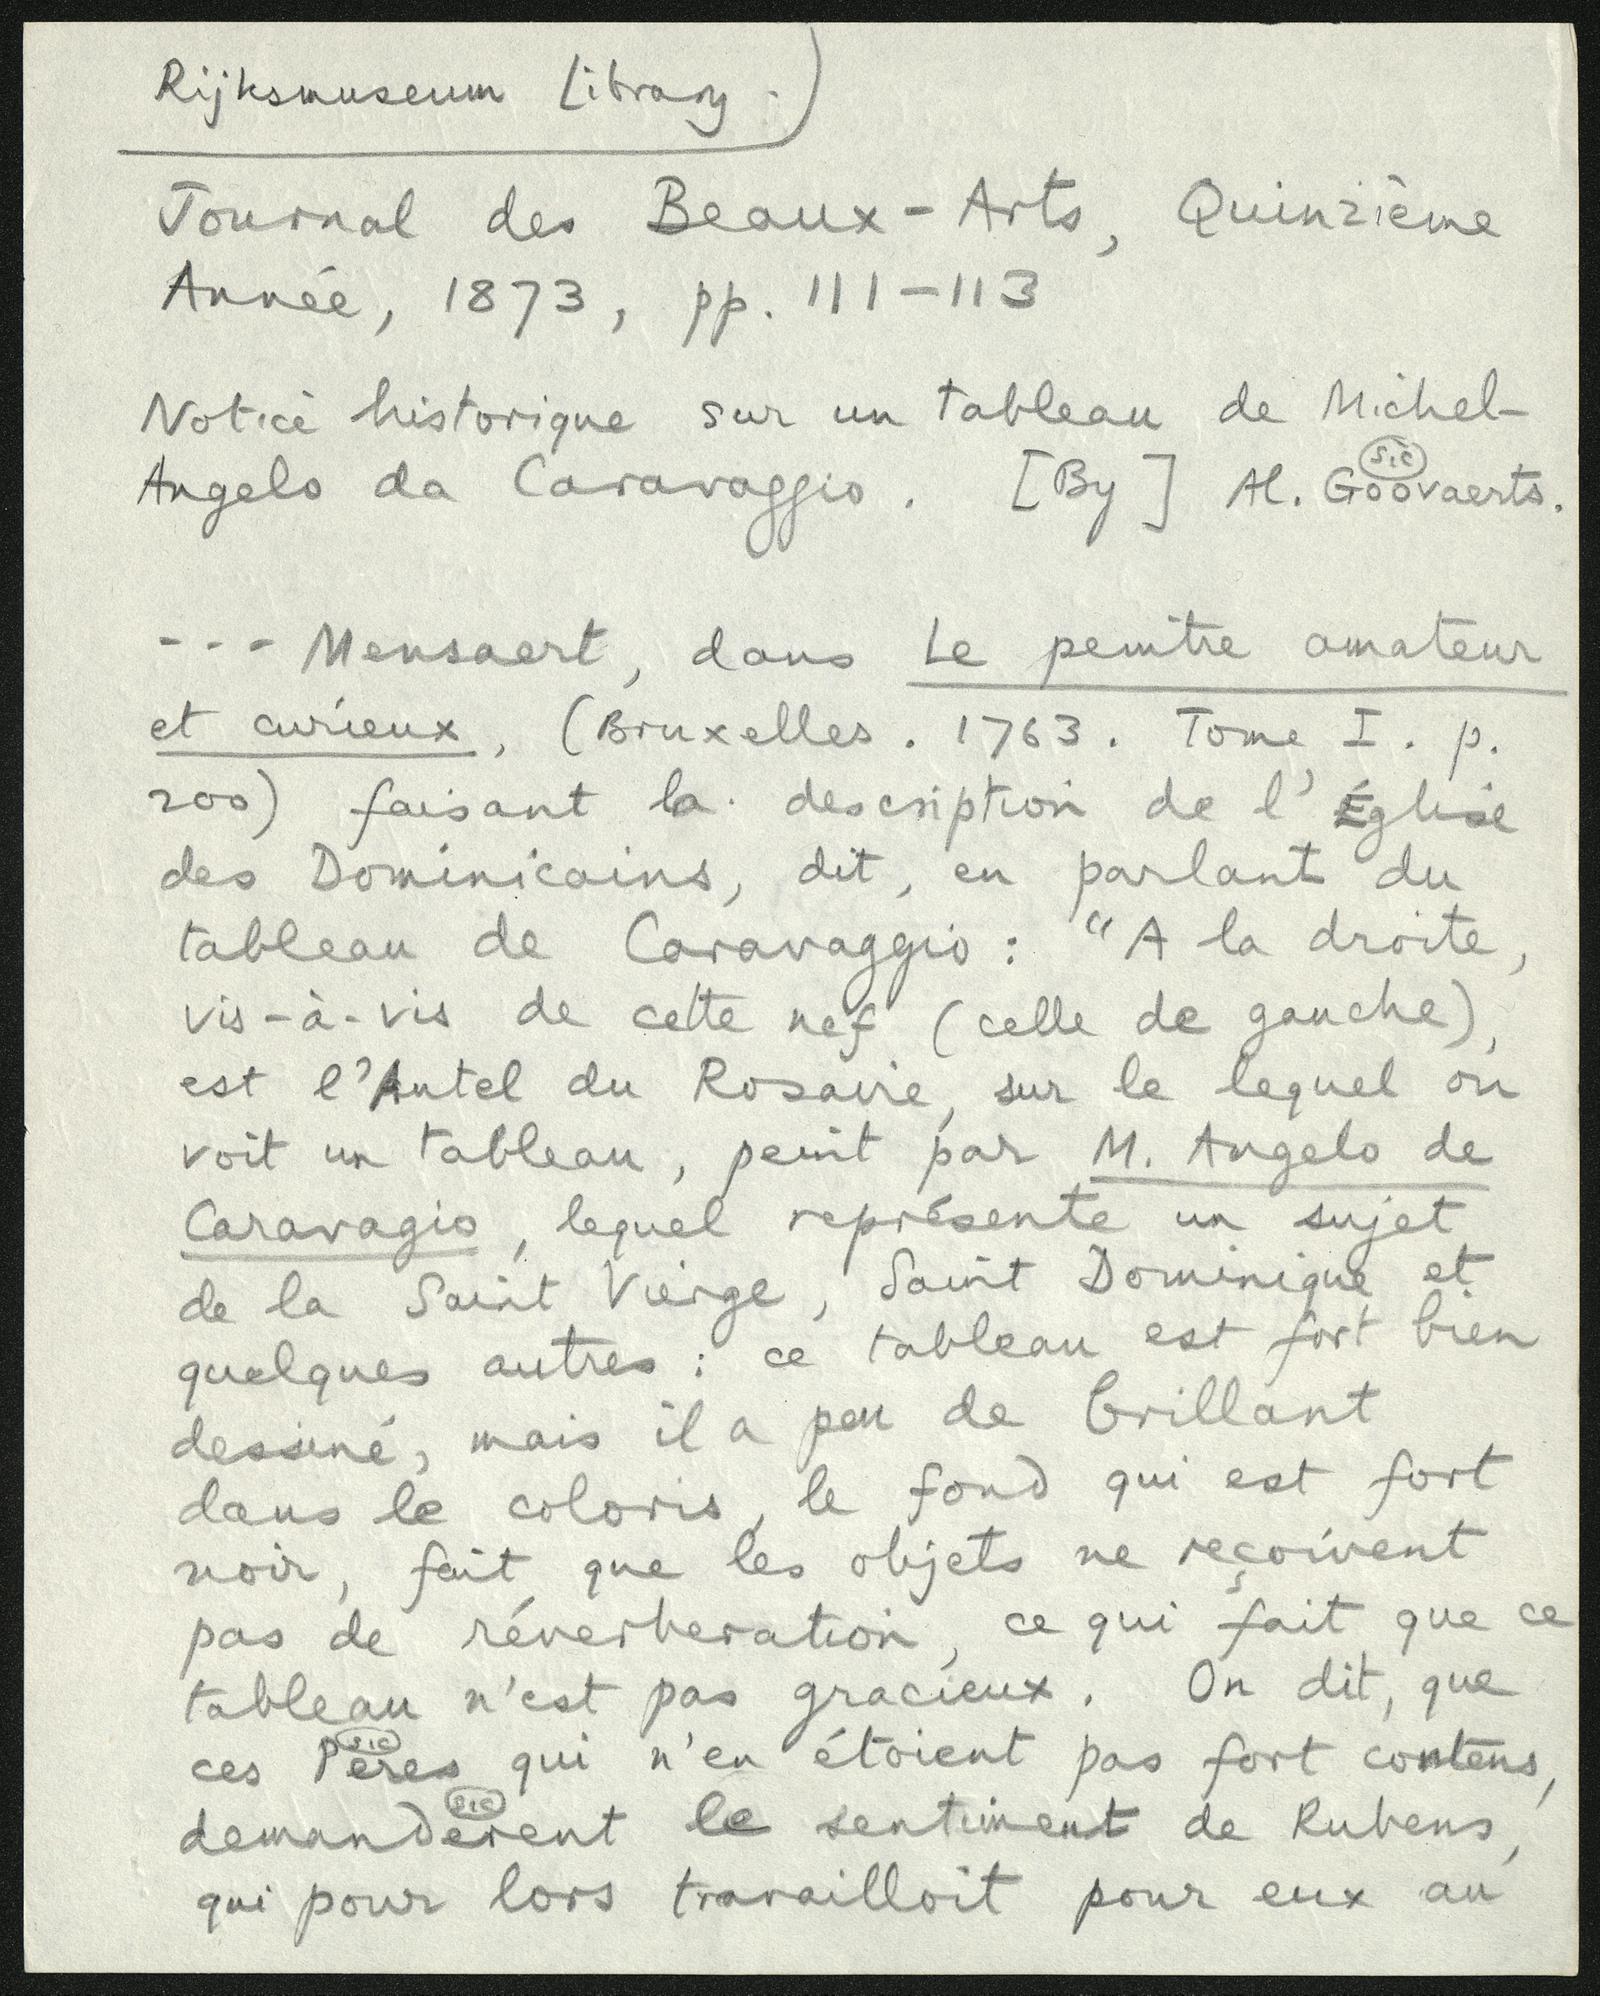 Rijksmuseum Library.
Journal des Beaux-Arts, Quinzième
Année, 1873, pp. 111-113
Notice historique sur un tableau de Michel-
Angelo da Caravaggio. [By] Al. Goovaerts.
sic
--- Mensaert, dans Le peintre amateur
et curieux, (Bruxelles. 1763. Tome I. p.
200) faisant la description de l'Église
des Dominicains, dit, en parlant du
tableau de Caravaggio: "A la droite,
vis-à-vis de cette nef (celle de gauche),
est l'Autel du Rosaire, sur le lequel on
voit un tableau, peint par M. Angelo de
Caravagio, lequel représente un sujet
de la Saint Vierge, Saint Dominique et
quelques autres: ce tableau est fort bien
dessiné, mais il a peu de brillant
dans le coloris, le fond qui est fort
noir, fait que les objets ne reçoivent
pas de réverberation, ce qui fait que ce
tableau n'est pas gracieux. On dit, que
sic
ces Peres qui n'en étoient pas fort contens,
sic
demanderent le sentiment de Rubens,
qui pour lors travailloit pour eux au